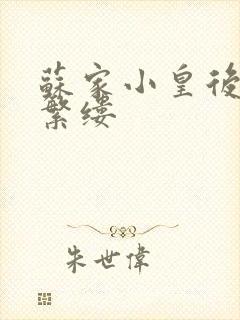 蘇家小皇後
繁縷
朱世偉